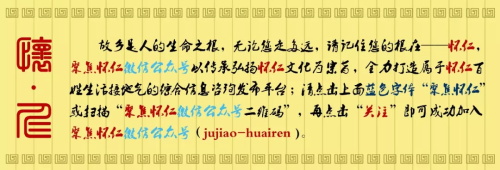 懷·仁
故乡是人的生命之根，无论您走多远，请记住您的根在——怀仁，
聚焦怀仁微信公众号以传承弘扬怀仁文化为宗旨，全力打造属于怀仁百
姓生活接地气的综合信息咨询发布平台；请点击上面蓝色字体“聚焦怀仁”
或扫描“聚焦怀仁微信公众号二维码”，再点击“关注”即可成功加入
聚焦怀仁微信公众号（jujiao-huairen）。